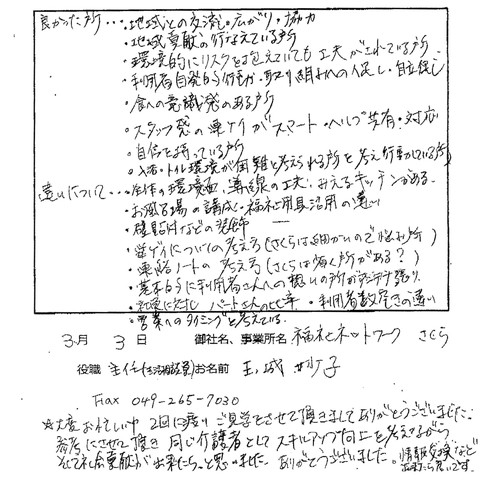 良かった所…・地域との交流し広がり・協力
・地域貢献の行なえている所
・環境的にリスクを抱えていても工夫がされている所
・利用者自発的行動・取り組みへの促し・自立促し
・食への意識発のある所
・スタッフ発の申しがスマート・ヘルプ共有・対応
・自信を持っている所
・入浴・トイレ環境が困難と考えられる所を考え行動かしている所
違いについて…・全体の環境面、導線の工夫、みえるキッチンがある。
・お風呂場の構成・福祉用具活用の違い
・壁貼付などの装飾
・についての考え方(さくらは細かいので悩み所)
・連絡ノートの考え方(さくらは書く所がある?)
・基本的に利用者さん人への想いの所が
・に対し パートさんの比率・利用者数などの違い
・営業へのタイミングと考えている。
3月 3日 御社名、事業所名 福祉ネットワーク さくら
役職 主任(生活相談員) お名前 玉城 子
Fax 049-265-7030
☆大変お忙しい中 2回に渡り ご見学をさせて頂きましてありがとうございました。
参考にさせて頂き 同じ介護者として スキルアップ向上を考えながら
そして社会貢献が出来たらと思いました。ありがとうございました。情報交換など
出来たら良いです。